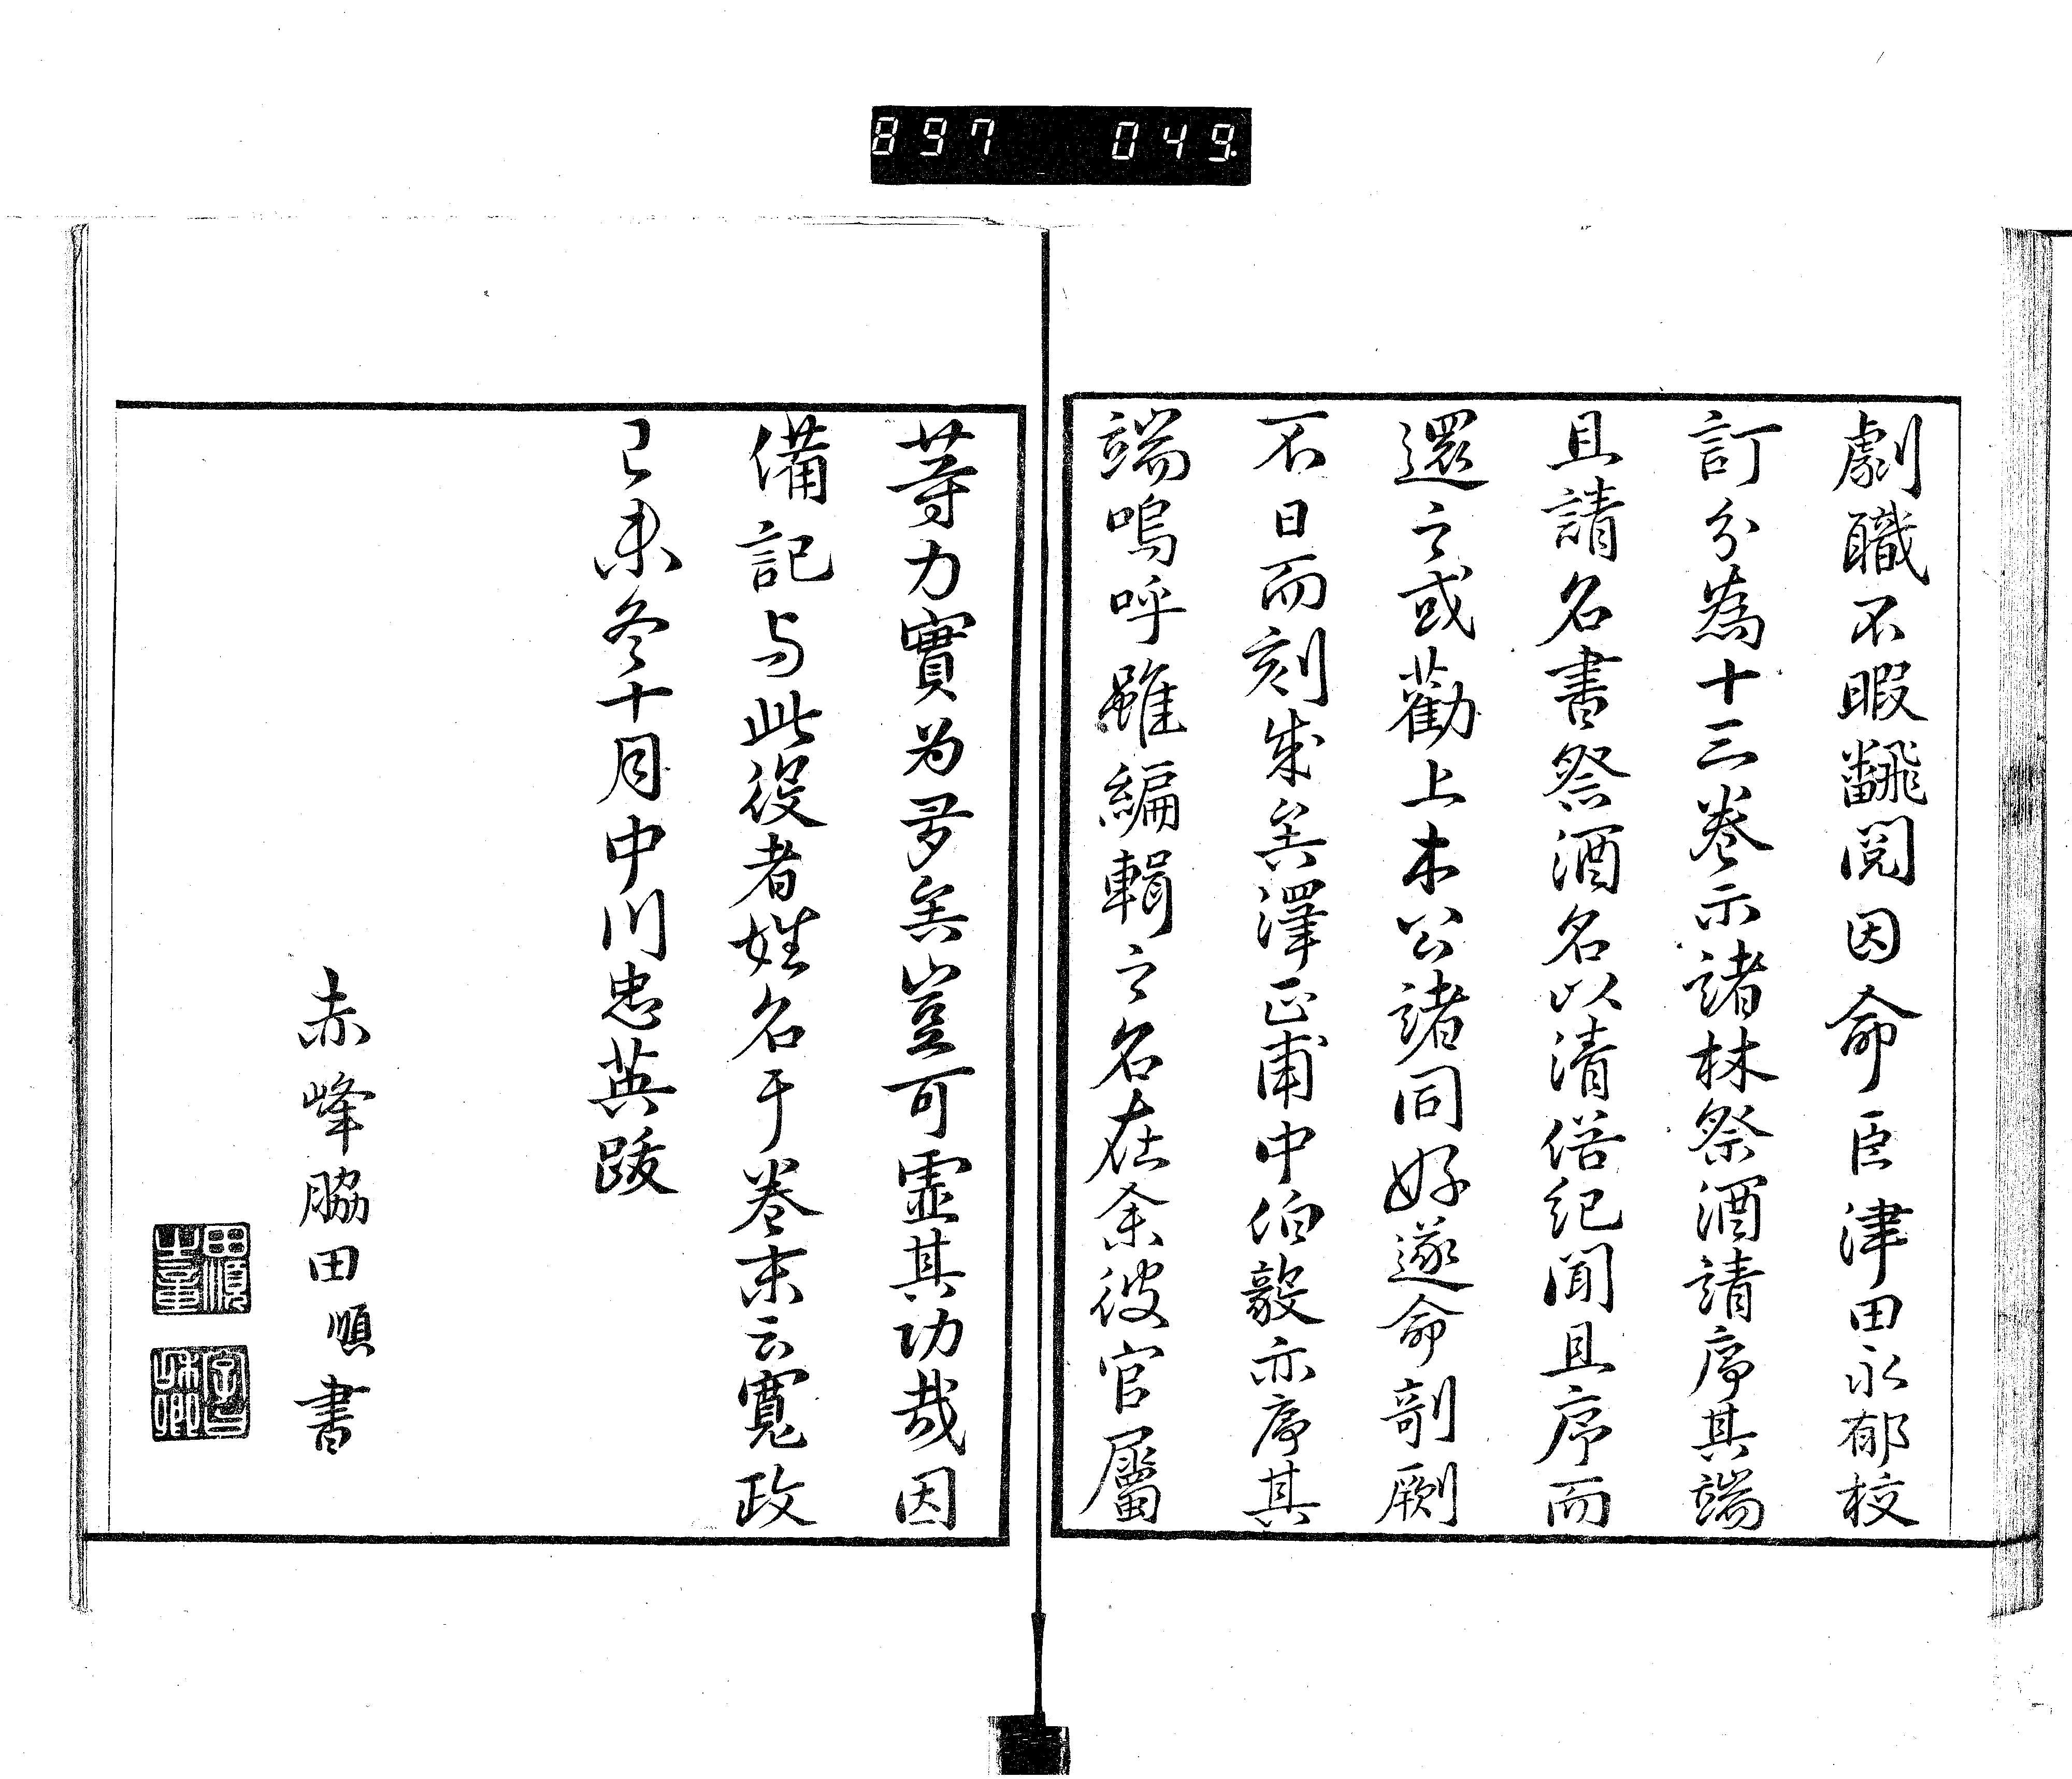 897 049
劇職不暇飜閲因命臣津田永郁校
訂分為十三卷示諸林祭酒請序其端
且請名書祭酒名以清俗紀聞且序而
還之或勸上木公諸同好遂命剞劂
不日而刻成矣澤正甫中伯毅亦序其
端嗚呼雖編輯之名在余彼官屬
等力實为多矣豈可虛其功哉因
備記与此役者姓名于卷末云寬政
己未冬十月中川忠英跋
赤峰脇田順書
田順
字曰